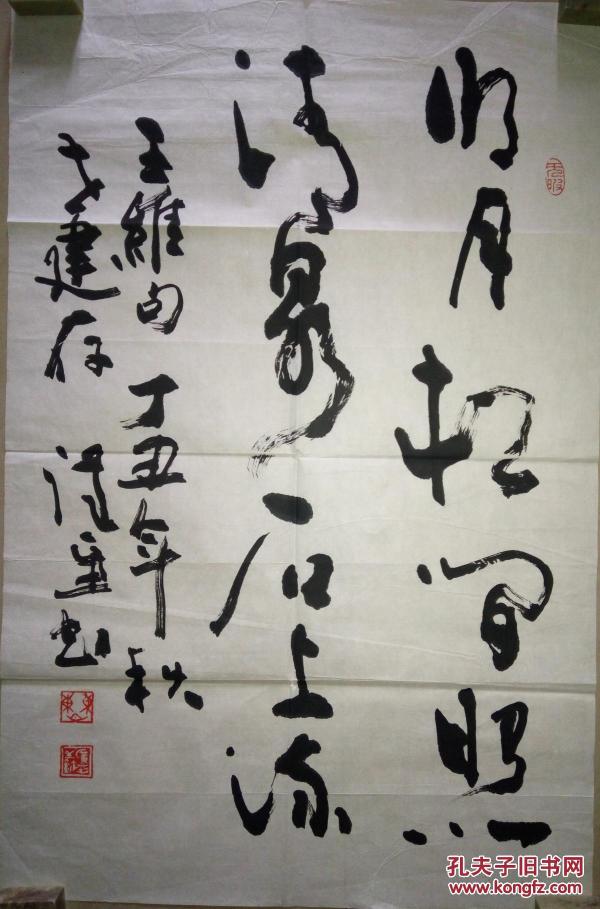 明月松间照
清泉石上流
王維句 丁丑年秋
建存
孔夫子旧书网
www.kongfz.com